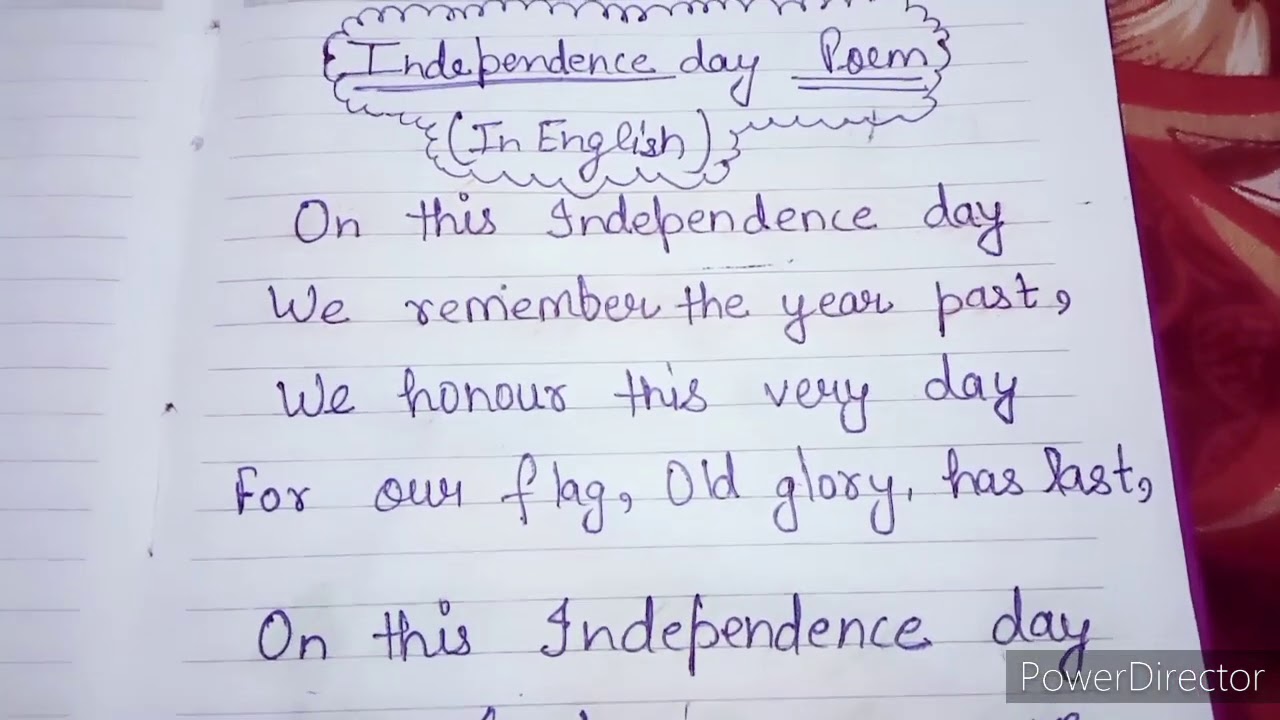 Independence day Poem
(In English)
On this Independence day
We remember the year past,
We honour this very day
For our flag, Old glory, has last,
On this Independence day
PowerDirector